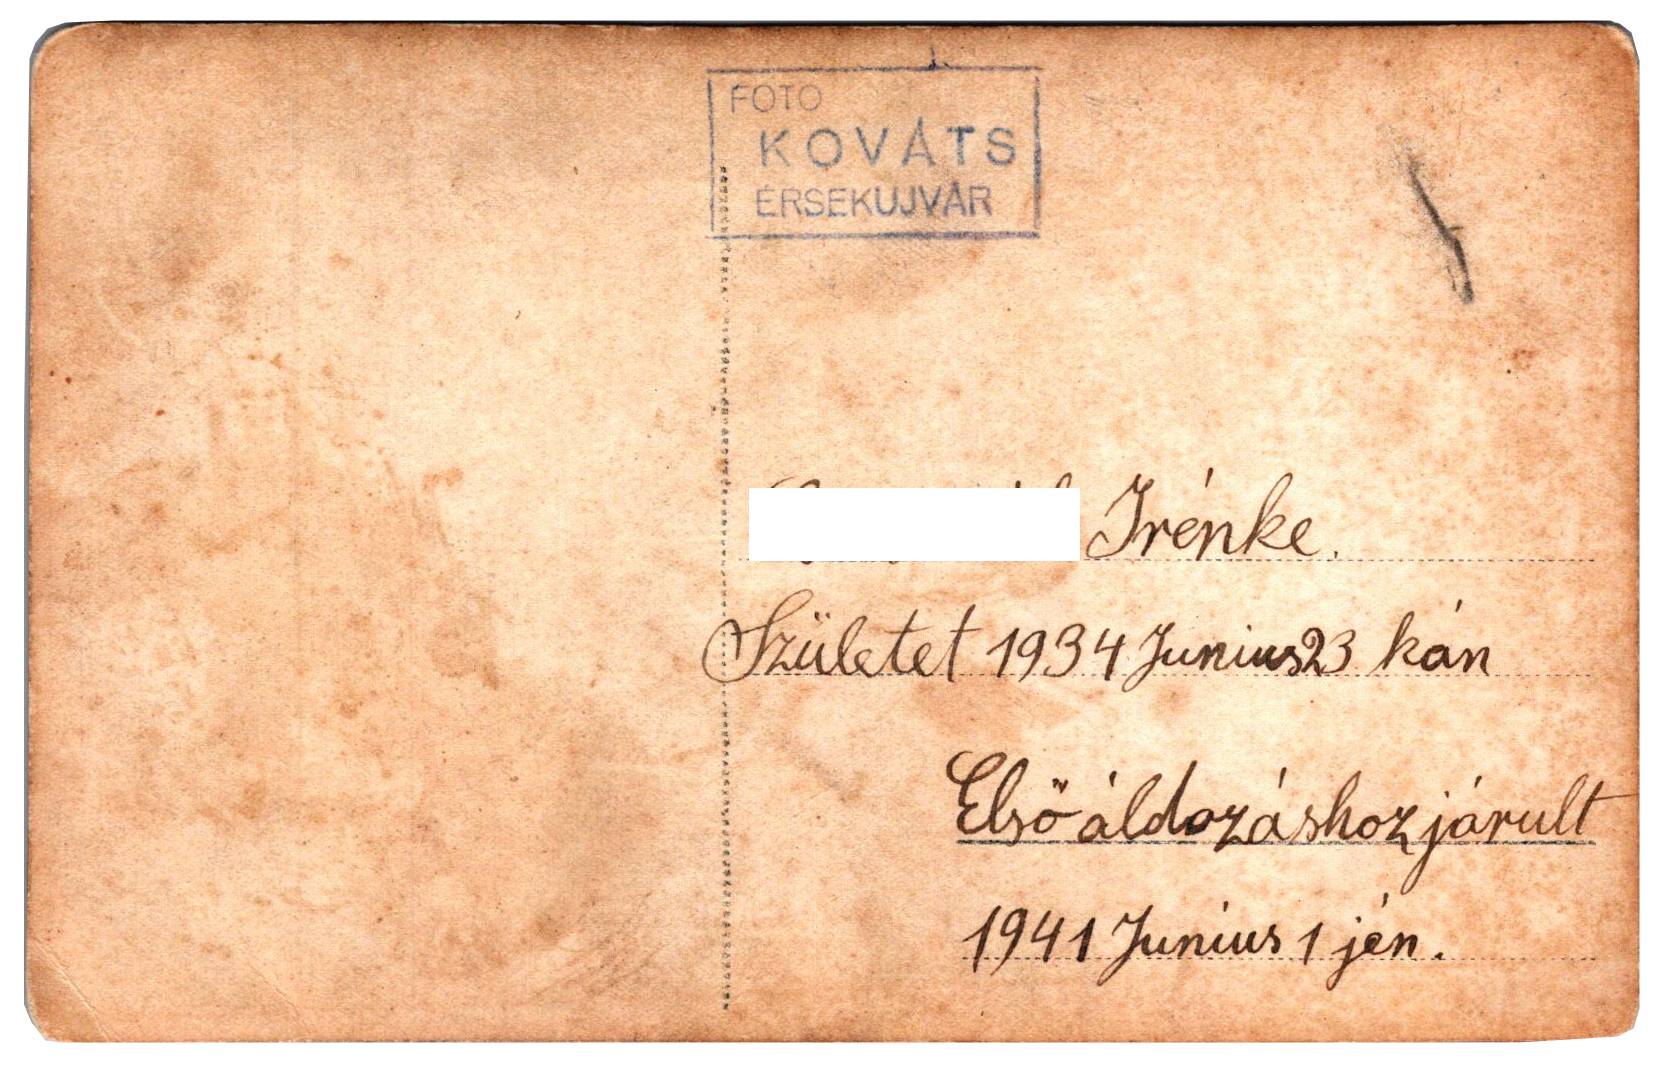 FOTO
KOVÁTS
ÉRSEKUJVÁR
Irénke.
Születet 1934 Junius 23 kán
Első áldozáshoz járult
1941 Junius 1 jén.